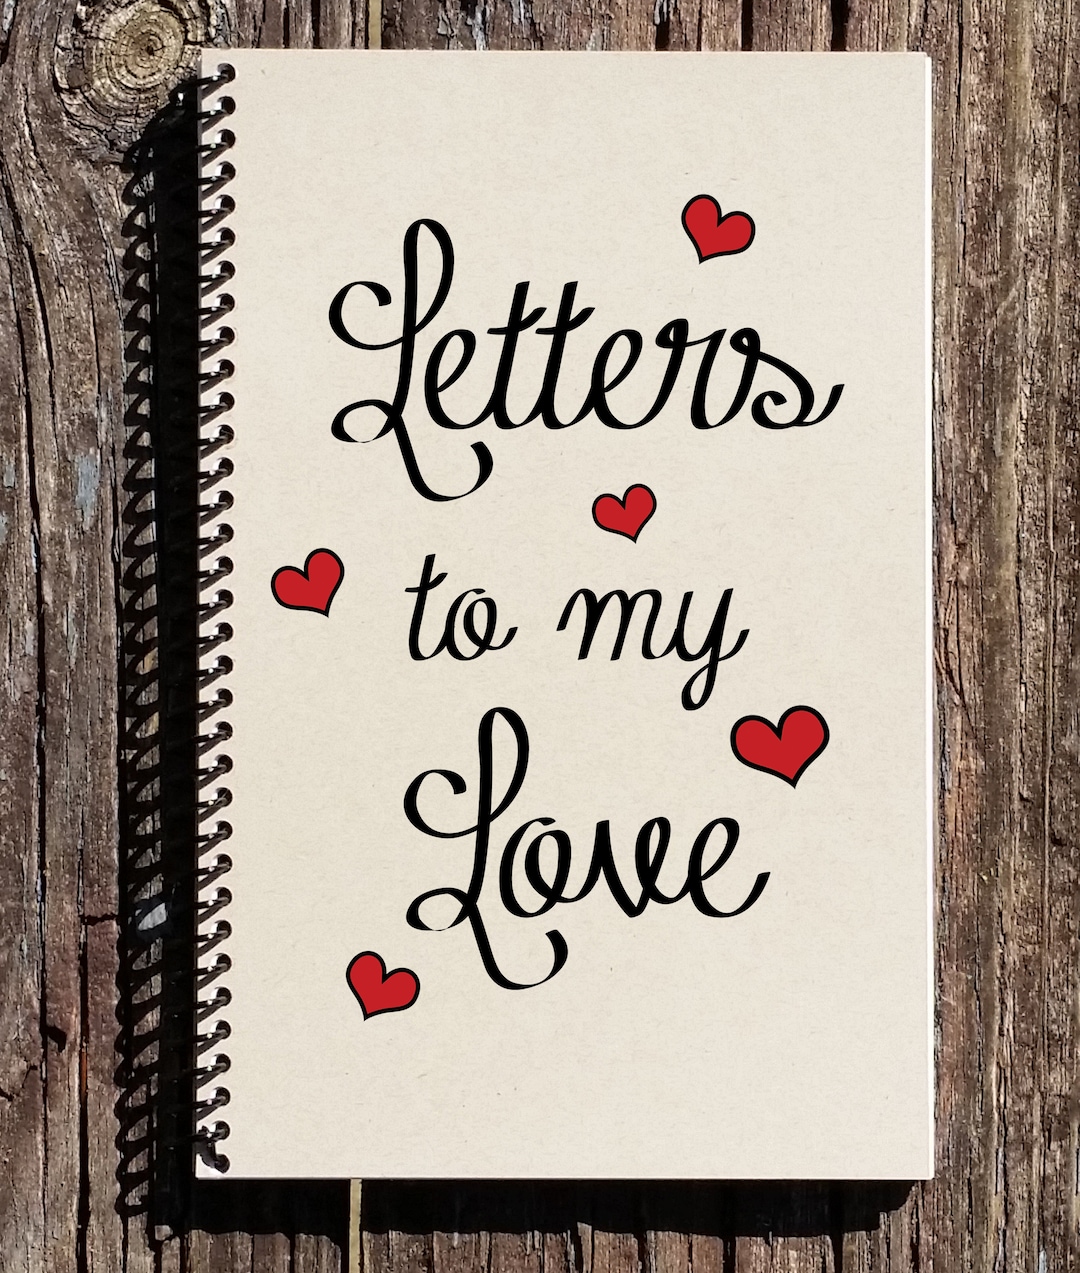 Letters
to my
Love